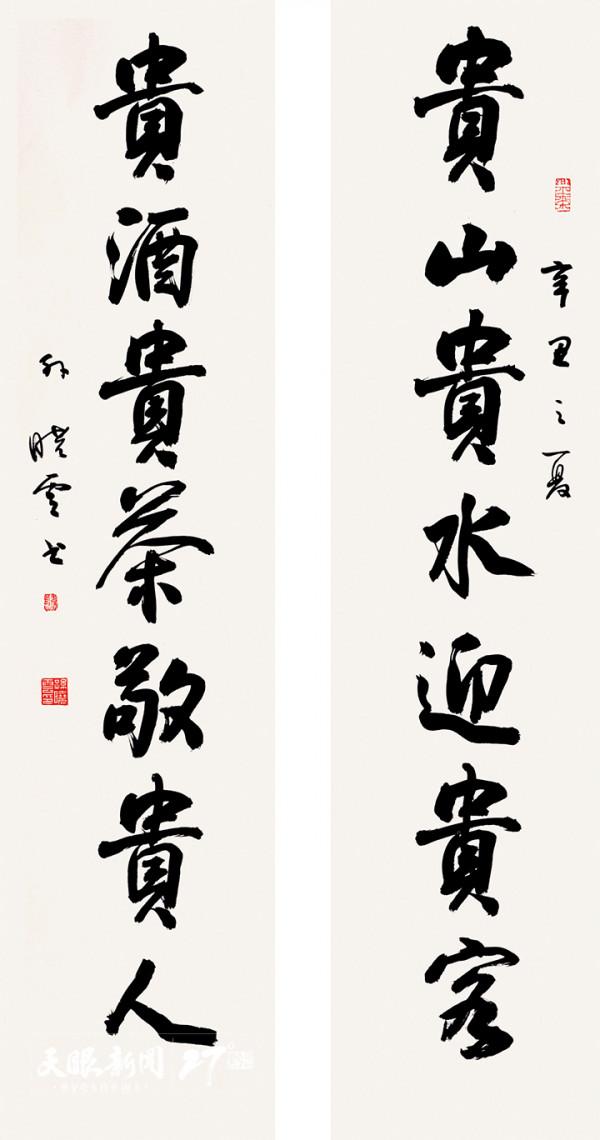 貴山貴水迎貴客
辛丑之夏
貴酒貴茶敬貴人
孙晓云书
天眼新闻 27°